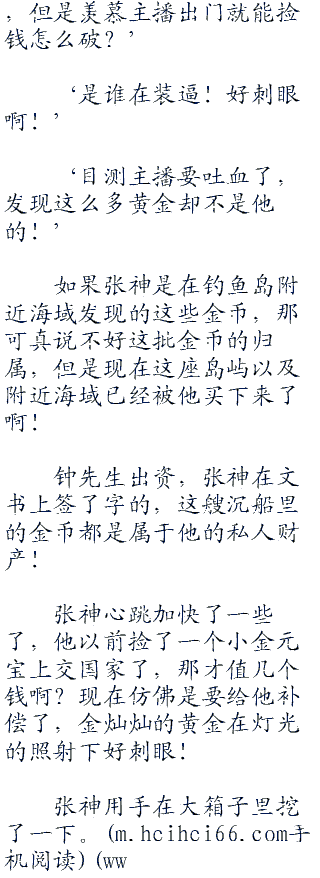 ，但是羡慕主播出门就能捡
钱怎么破？’
‘是谁在装逼！好刺眼
啊！’
‘目测主播要吐血了，
发现这么多黄金却不是他
的！’
如果张神是在钓鱼岛附
近海域发现的这些金币，那
可真说不好这批金币的归
属，但是现在这座岛屿以及
附近海域已经被他买下来了
啊！
钟先生出资，张神在文
书上签了字的，这艘沉船里
的金币都是属于他的私人财
产！
张神心跳加快了一些
了，他以前捡了一个小金元
宝上交国家了，那才值几个
钱啊？现在仿佛是要给他补
偿了，金灿灿的黄金在灯光
的照射下好刺眼！
张神用手在大箱子里挖
了一下。(m.hcihci66.com手
机阅读)(ww